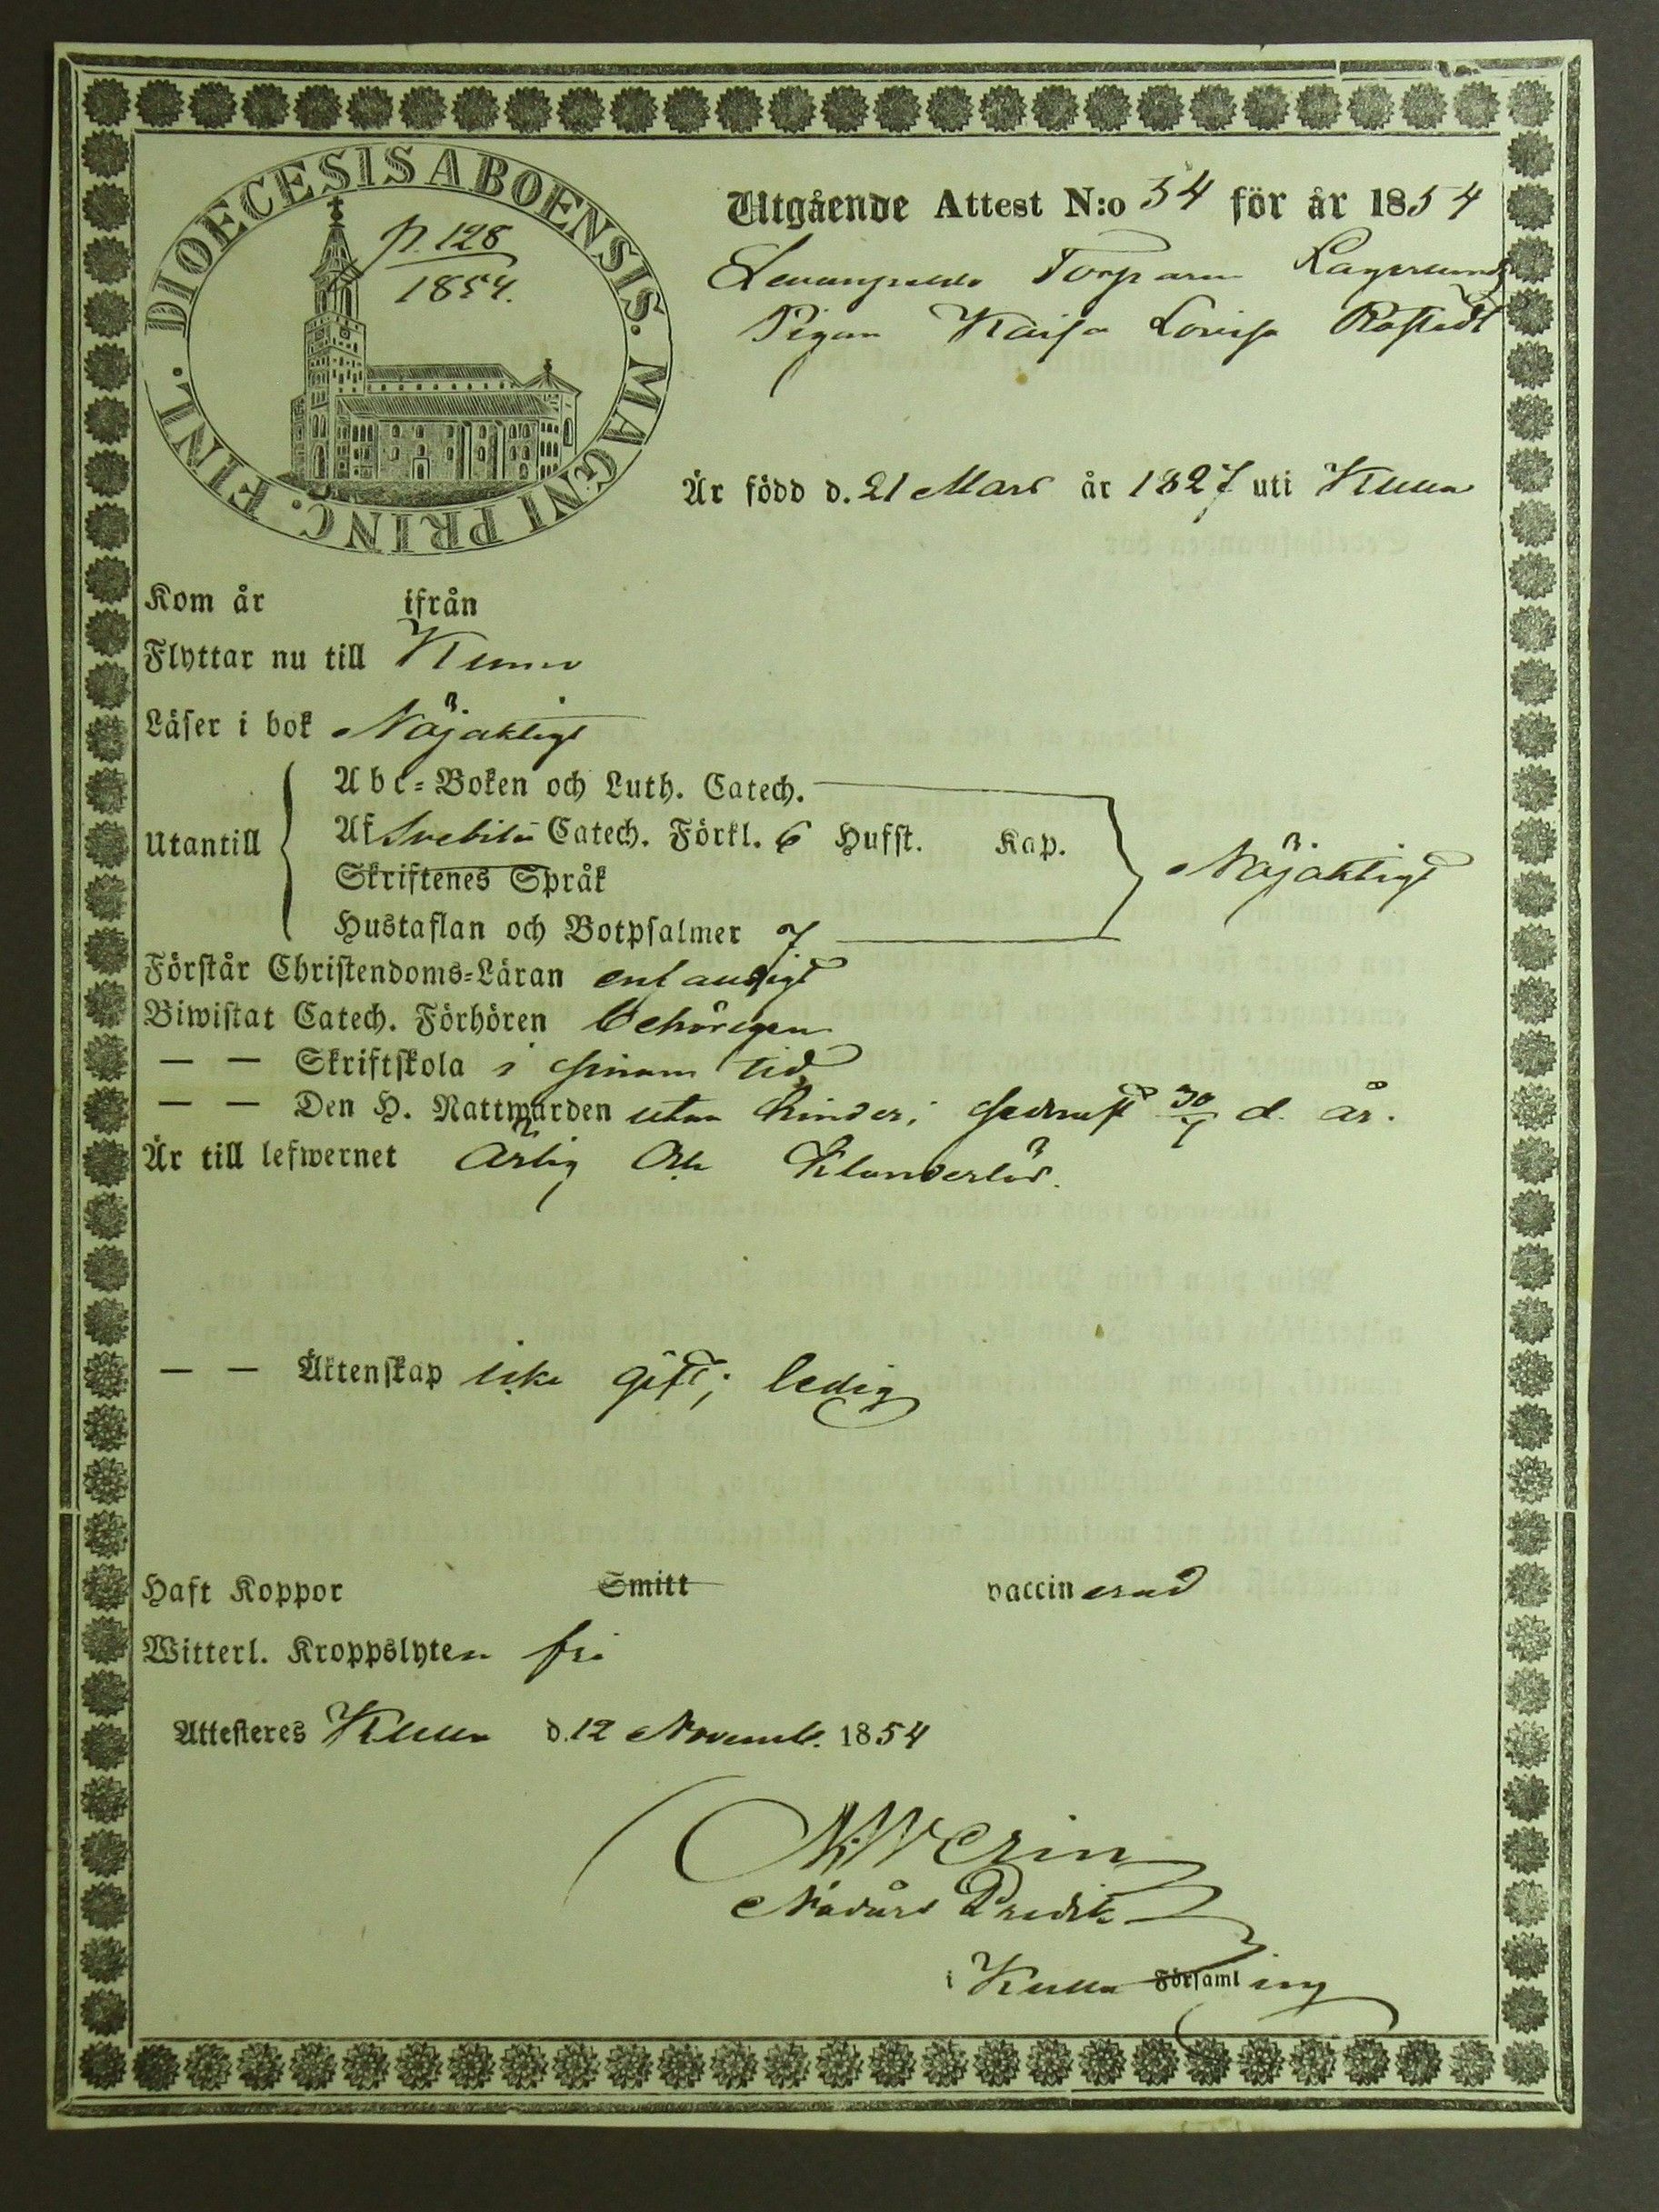 DIOECESIS ABOENSIS. MAGNI PRINC. FINL.
p. 128
1854.
Utgående Attest N:o 54 för år 1854
Torparn
Pigan Kaisa Lovisa
Är född d. 21 Mars år 1827 uti Kumo
Kom år ifrån
Flyttar nu till Kumo
Läser i bok Nöjaktigt
Utantill
Abc-Boken och Luth. Catech.
Af Svebilii Catech. Förkl. 6 Hufst. Kap.
Skriftenes Språk
Hustaflan och Botpsalmer 7
Nöjaktigt
Förstår Christendoms-Läran enfaldigt
Biwistat Catech. Förhören behörigen
— — Skriftskola i sinom tid
— — Den H. Nattwarden utan hinder; sednast 30/7 d. år.
Är till lefwernet Ärlig och Klanderlös.
— — Äktenskap icke gift; ledig
Haft Koppor Smitt vaccinerad
Witterl. Kroppslyten fri
Attesteres Kumo d. 12 Novemb. 1854
Nådårs Predik.
i Församling